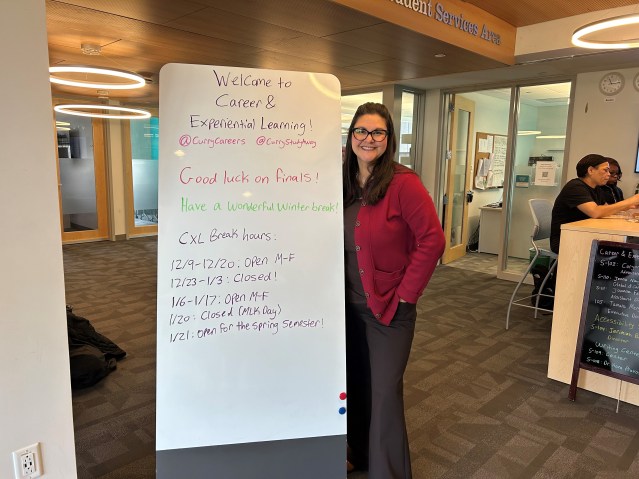 Student Services Area
Welcome to
Career &
Experiential Learning!
@CurryCareers @CurryStudyAway
Good luck on finals!
Have a wonderful winter break!
CXL Break hours:
12/9-12/20: Open M-F
12/23-1/3: Closed!
1/6-1/17: Open M-F
1/20: Closed (MLK Day)
1/21: Open for the Spring Semester!
Career & Ex
Accessibility
Director
Writing Cent